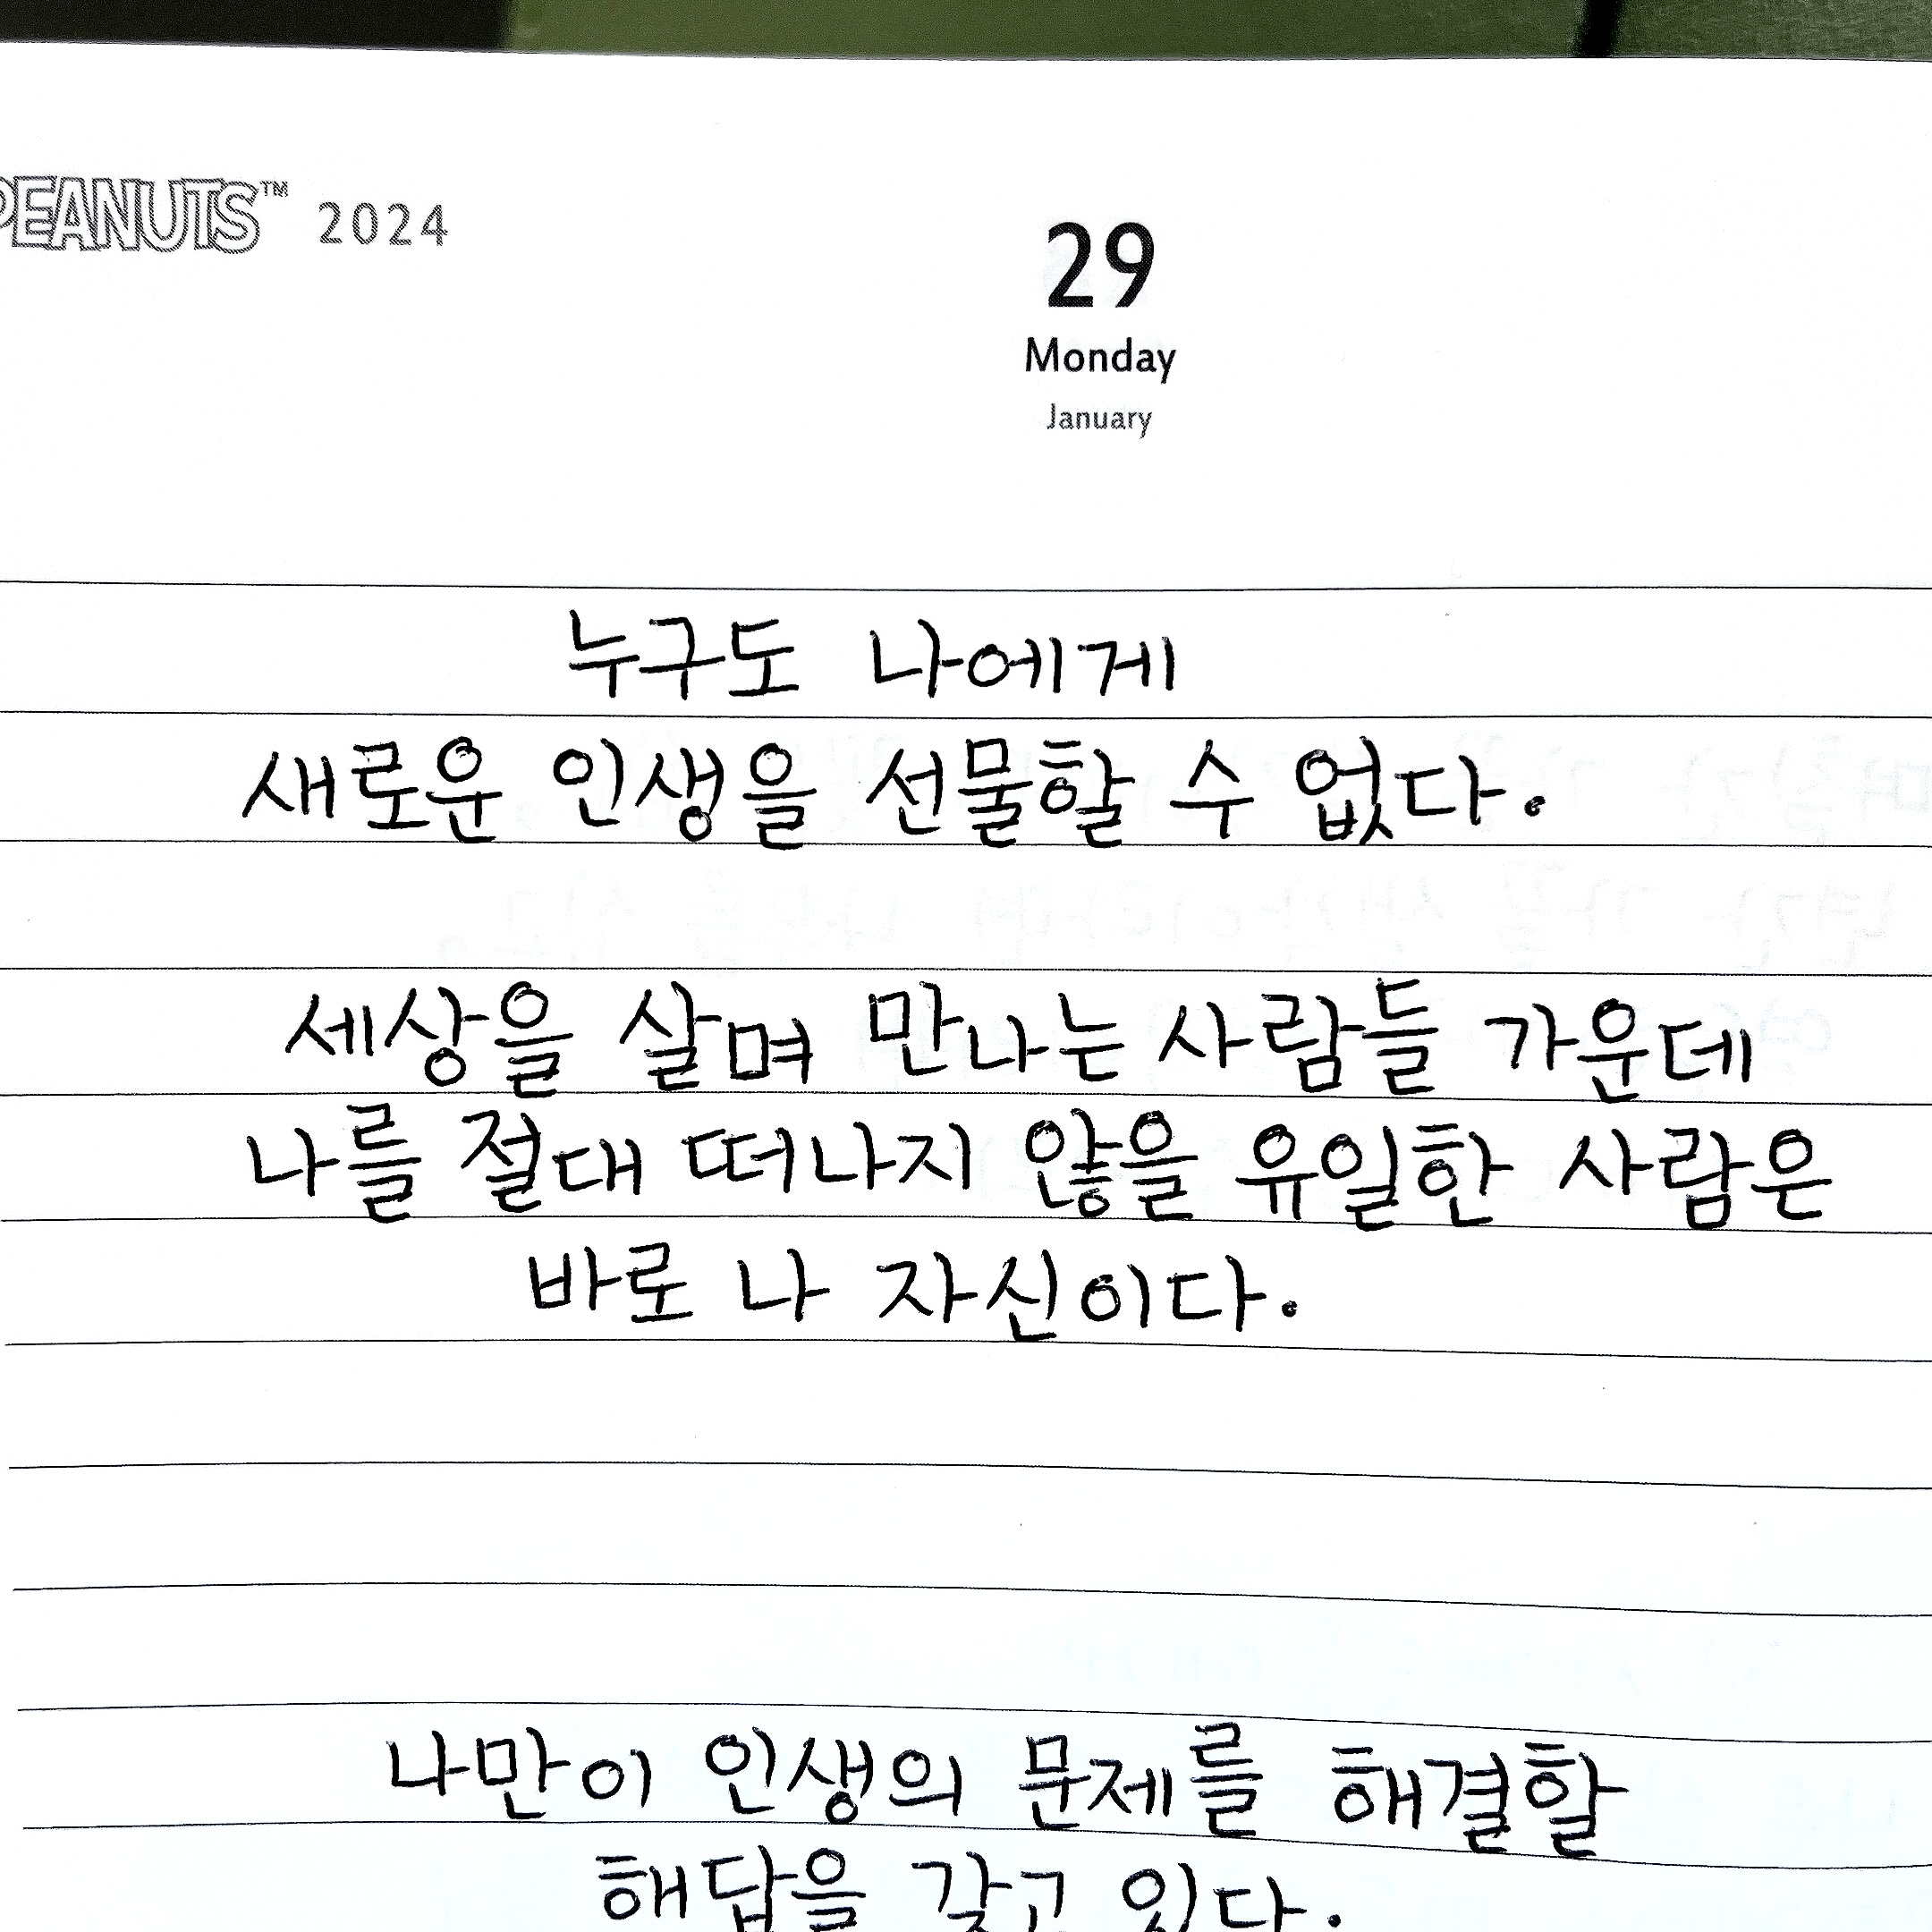 PEANUTS™ 2024
29
Monday
January
누구도 나에게
새로운 인생을 선물할 수 없다.
세상을 살며 만나는 사람들 가운데
나를 절대 떠나지 않을 유일한 사람은
바로 나 자신이다.
나만이 인생의 문제를 해결할
해답을 갖고 있다.